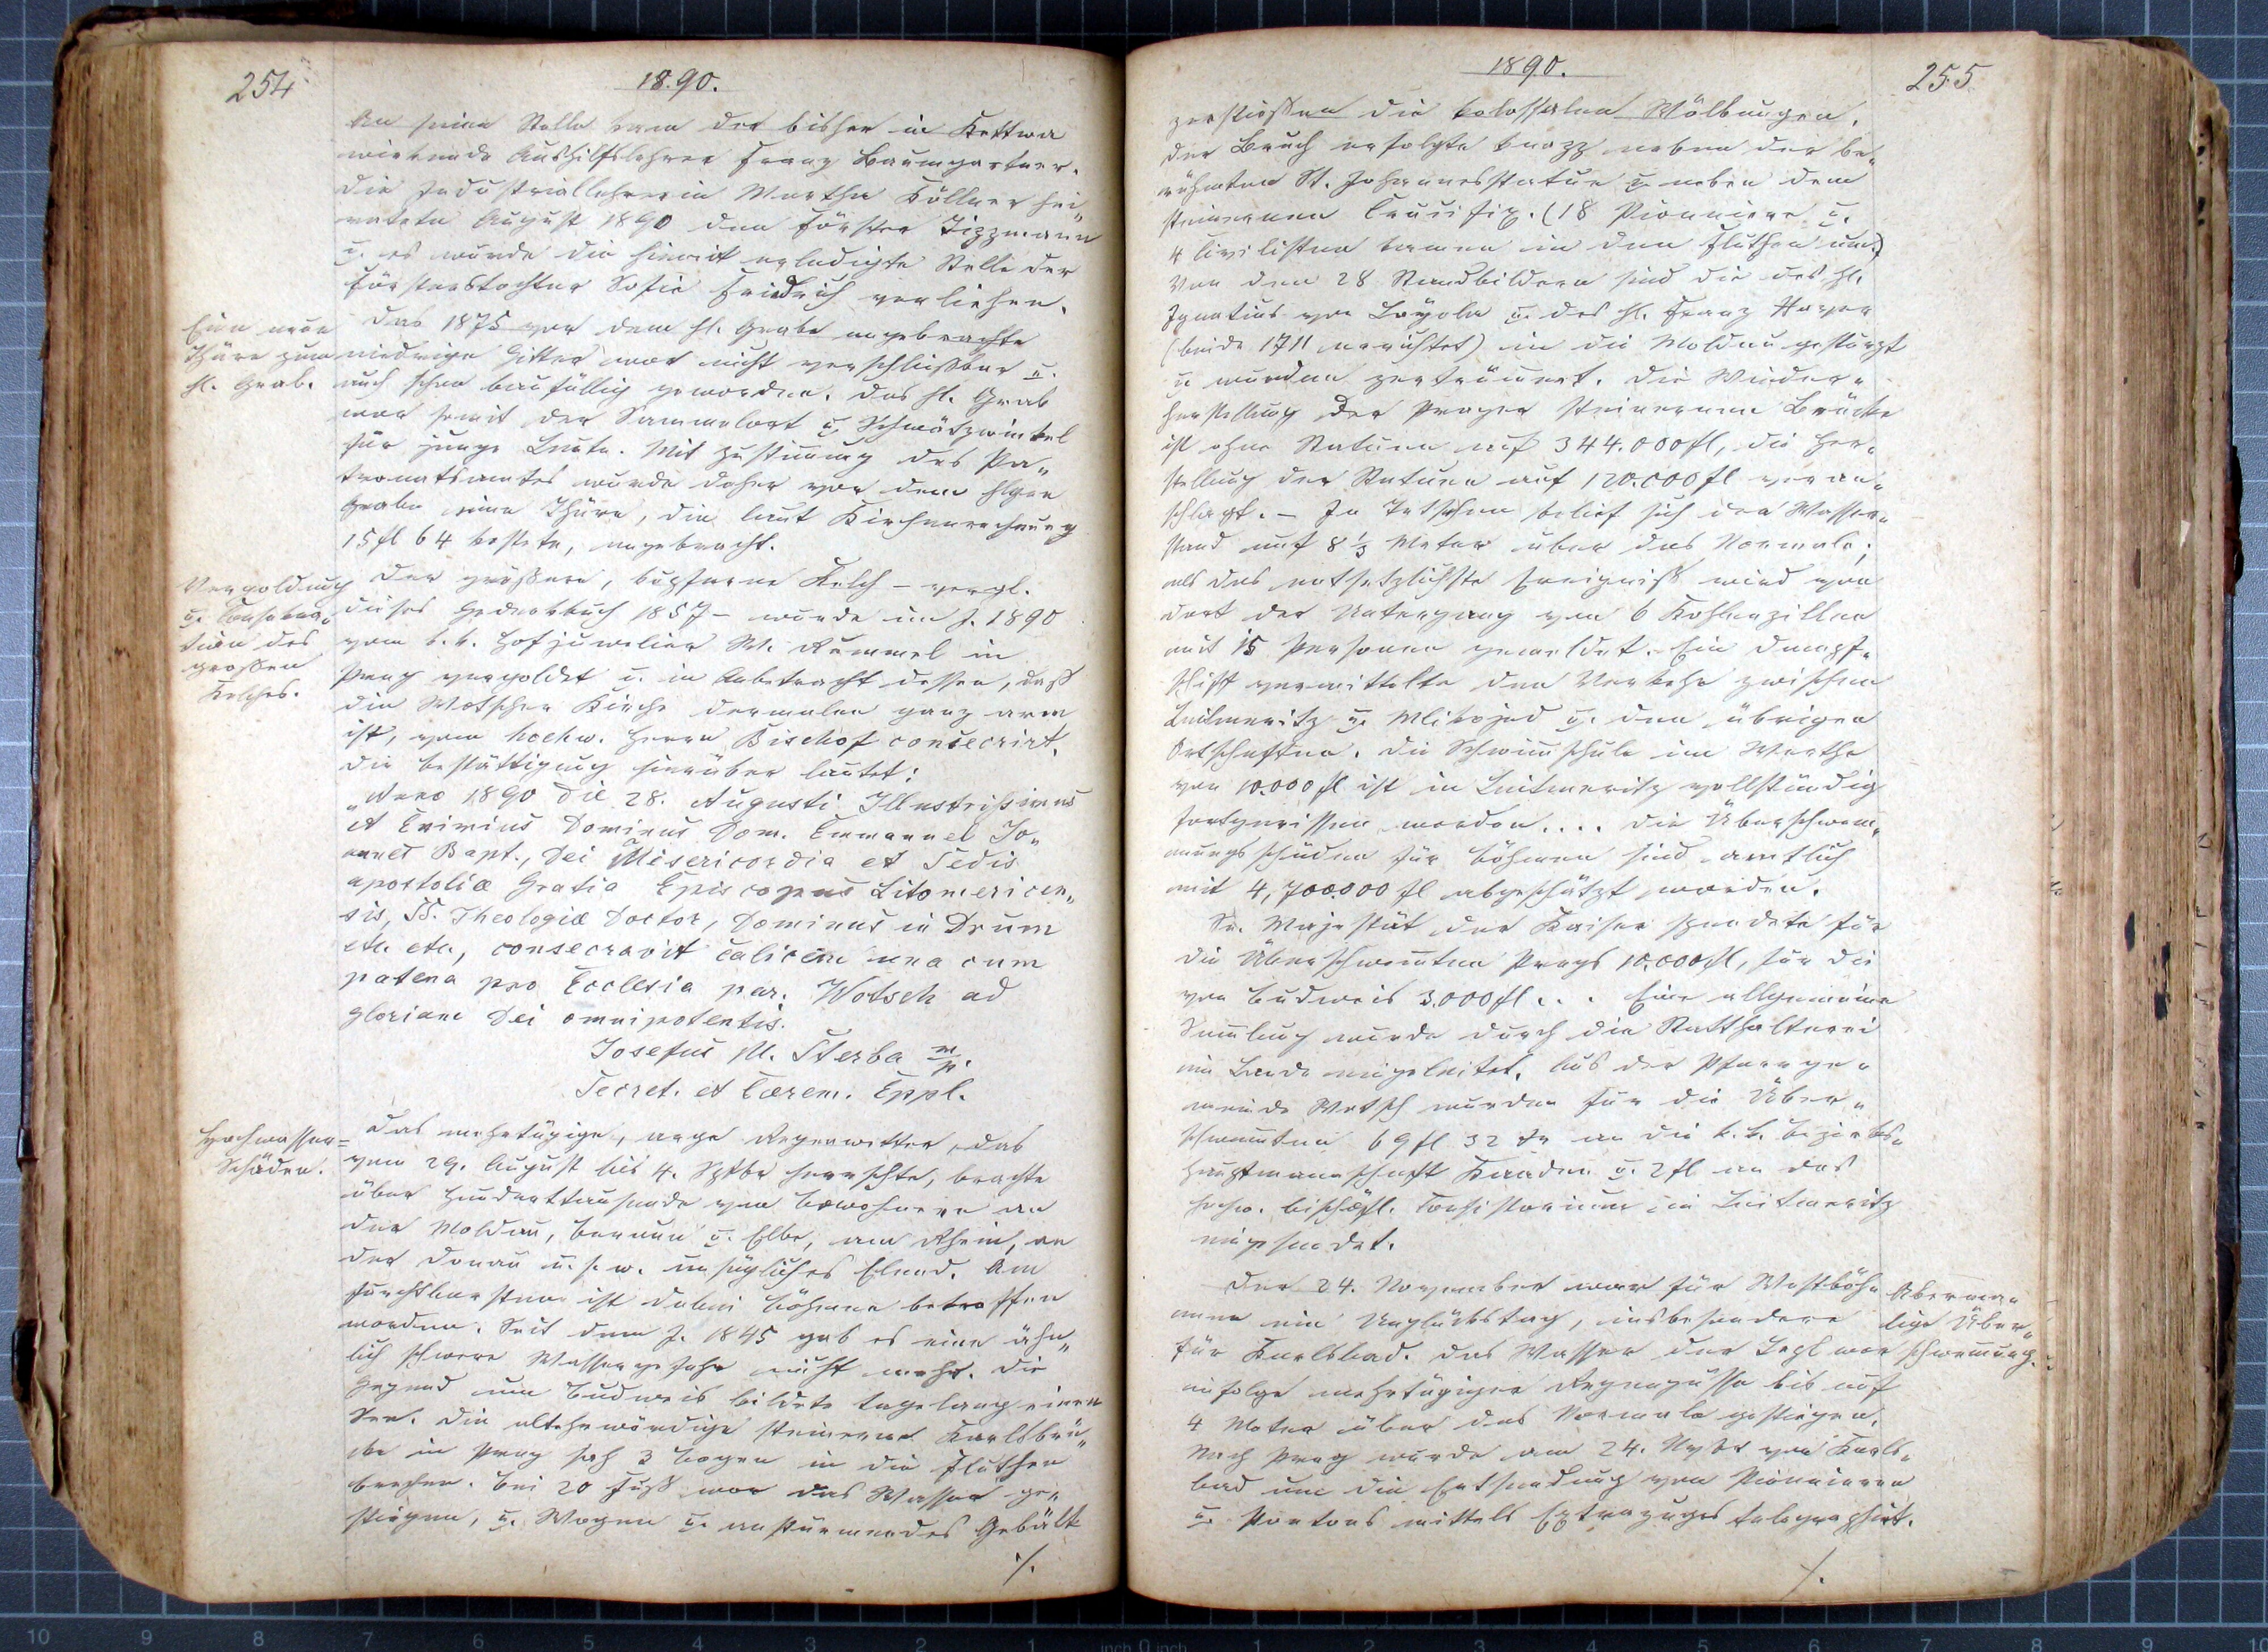 254
1890.
An seine Stelle kam der bisher in Kettwa
wirkende Aushilfslehrer Franz Baumgartner.
Die Industriallehrerin Martha Köllner hei„
ratete August 1890 den Förster Tizzmann
u. es wurde die hiemit erledigte Stelle der
Försterstochter Sofie Friedrich verliehen.
Eine neue
Thüre zum
hl. Grab.
Das 1875 vor dem hl. Grabe angebrachte
niedrige Gitter war nicht verschließbar u.
auch schon baufällig geworden. Das hl. Grab
war somit der Sammelort u. Schwätzwinkel
für junge Leute. Mit Zustimmung des Pa„
tronatsamtes wurde daher vor dem hlgen
Grabe eine Thüre, die laut Kirchenrechnung
15 fl 64 kostete, angebracht.
Vergoldung
u. Consekra„
tion des
großen
Kelches.
Der größere, kupferne Kelch – vergl.
dieses Gedenkbuch 1857 – wurde im J. 1890
vom k. k. Hofjuwelier M. Rummel in
Prag vergoldet u. in Anbetracht dessen, daß
die Wotscher Kirche dermalen ganz arm
ist, vom hochw. Herrn Bischof consecrirt.
Die Bestättigung hierüber lautet:
„Anno 1890 die 28. Augusti Illustrissimus
et Eximius Dominus Dom. Emmanuel Jo„
annes Bapt., Dei Misericordia et Sedis
apostoliæ Gratia Episcopus Litomericen„
sis, SS. Theologiæ Doctor, Dominus in Drum
etc. etc., consecravit calicem una cum
patena pro Ecclesia par. Wotsch ad
gloriam Dei omnipotentis.
Josefus M. Sterba m/p.
Secret. et Cærem. Eppl.
Hochwasser=
Schäden.
Das mehrtägige, arge Regenwetter, das
vom 29. August bis 4. Sptbr herrschte, brachte
über Hunderttausende von Bewohnern an
der Moldau, Beraun u. Elbe, am Rhein, an
der Donau u. s. w. unsägliches Elend. Am
furchtbarsten ist dabei Böhmen betroffen
worden. Seit dem J. 1845 gab es eine ähn„
lich schwere Wassergefahr nicht mehr. Die
Gegend um Budweis bildete tagelang einen
See. Die altehrwürdige steinerne Karlsbrü„
cke in Prag sah 3 Bogen in die Fluthen
brechen. Bei 20 Fuß war das Wasser ge„
stiegen, u. Wogen u. anstürmendes Gebälk
./.
1890.
255
zerstießen die kolossalen Wölbungen.
Der Bruch erfolgte knapp neben der be„
rühmten St. Johannesstatue u. neben dem
steinernen Crucifix. (18 Pionniere u.
4 Civilisten kamen in den Fluthen um.)
Von den 28 Standbildern sind die des hl.
Ignatius von Loyola u. des hl. Franz Xaver
(beide 1711 errichtet) in die Moldau gestürzt
u. wurden zertrümmert. Die Wieder„
herstellung der Prager steinernen Brücke
ist ohne Statuen auf 344.000 fl, die Her„
stellung der Statuen auf 120.000 fl veran„
schlagt. – In Tetschen belief sich der Wasser„
stand auf 8 1/3 Meter über das Normale;
als das entsetzlichste Ereigniß wird von
dort der Untergang von 6 Kohlenzillen
mit 15 Personen gemeldet. Ein Dampf„
schiff vermittelte den Verkehr zwischen
Leitmeritz u. Mlikojed u. den übrigen
Ortschaften. Die Schwimmschule im Werthe
von 10.000 fl ist in Leitmeritz vollständig
fortgerissen worden.... Die Überschwem„
mungsschäden für Böhmen sind amtlich
mit 4,700.000 fl abgeschätzt worden.
Se. Majestät der Kaiser spendete für
die Überschwemmten Prags 10.000 fl, für die
von Budweis 3.000 fl... Eine allgemeine
Sammlung wurde durch die Statthalterei
im Lande eingeleitet. Aus der Pfarrge„
meinde Wotsch wurden für die Über„
schwemmten 69 fl 32 kr an die k. k. Bezirks„
hauptmannschaft Kaaden u. 2 fl an das
hochw. bischöfl. Consistorium in Leitmeritz
eingesendet.
Der 24. November war für Westböh„
men ein Unglückstag, insbesondere
für Karlsbad. Das Wasser der Tepl war
infolge mehrtägiger Regengüsse bis auf
4 Meter über das Normale gestiegen.
Nach Prag wurde am 24. Nvbr von Karls„
bad um die Entsendung von Pionnieren
u. Pontons mittels Extrazuges telegraphirt.
Aberma„
lige Über„
schwemmung.
./.